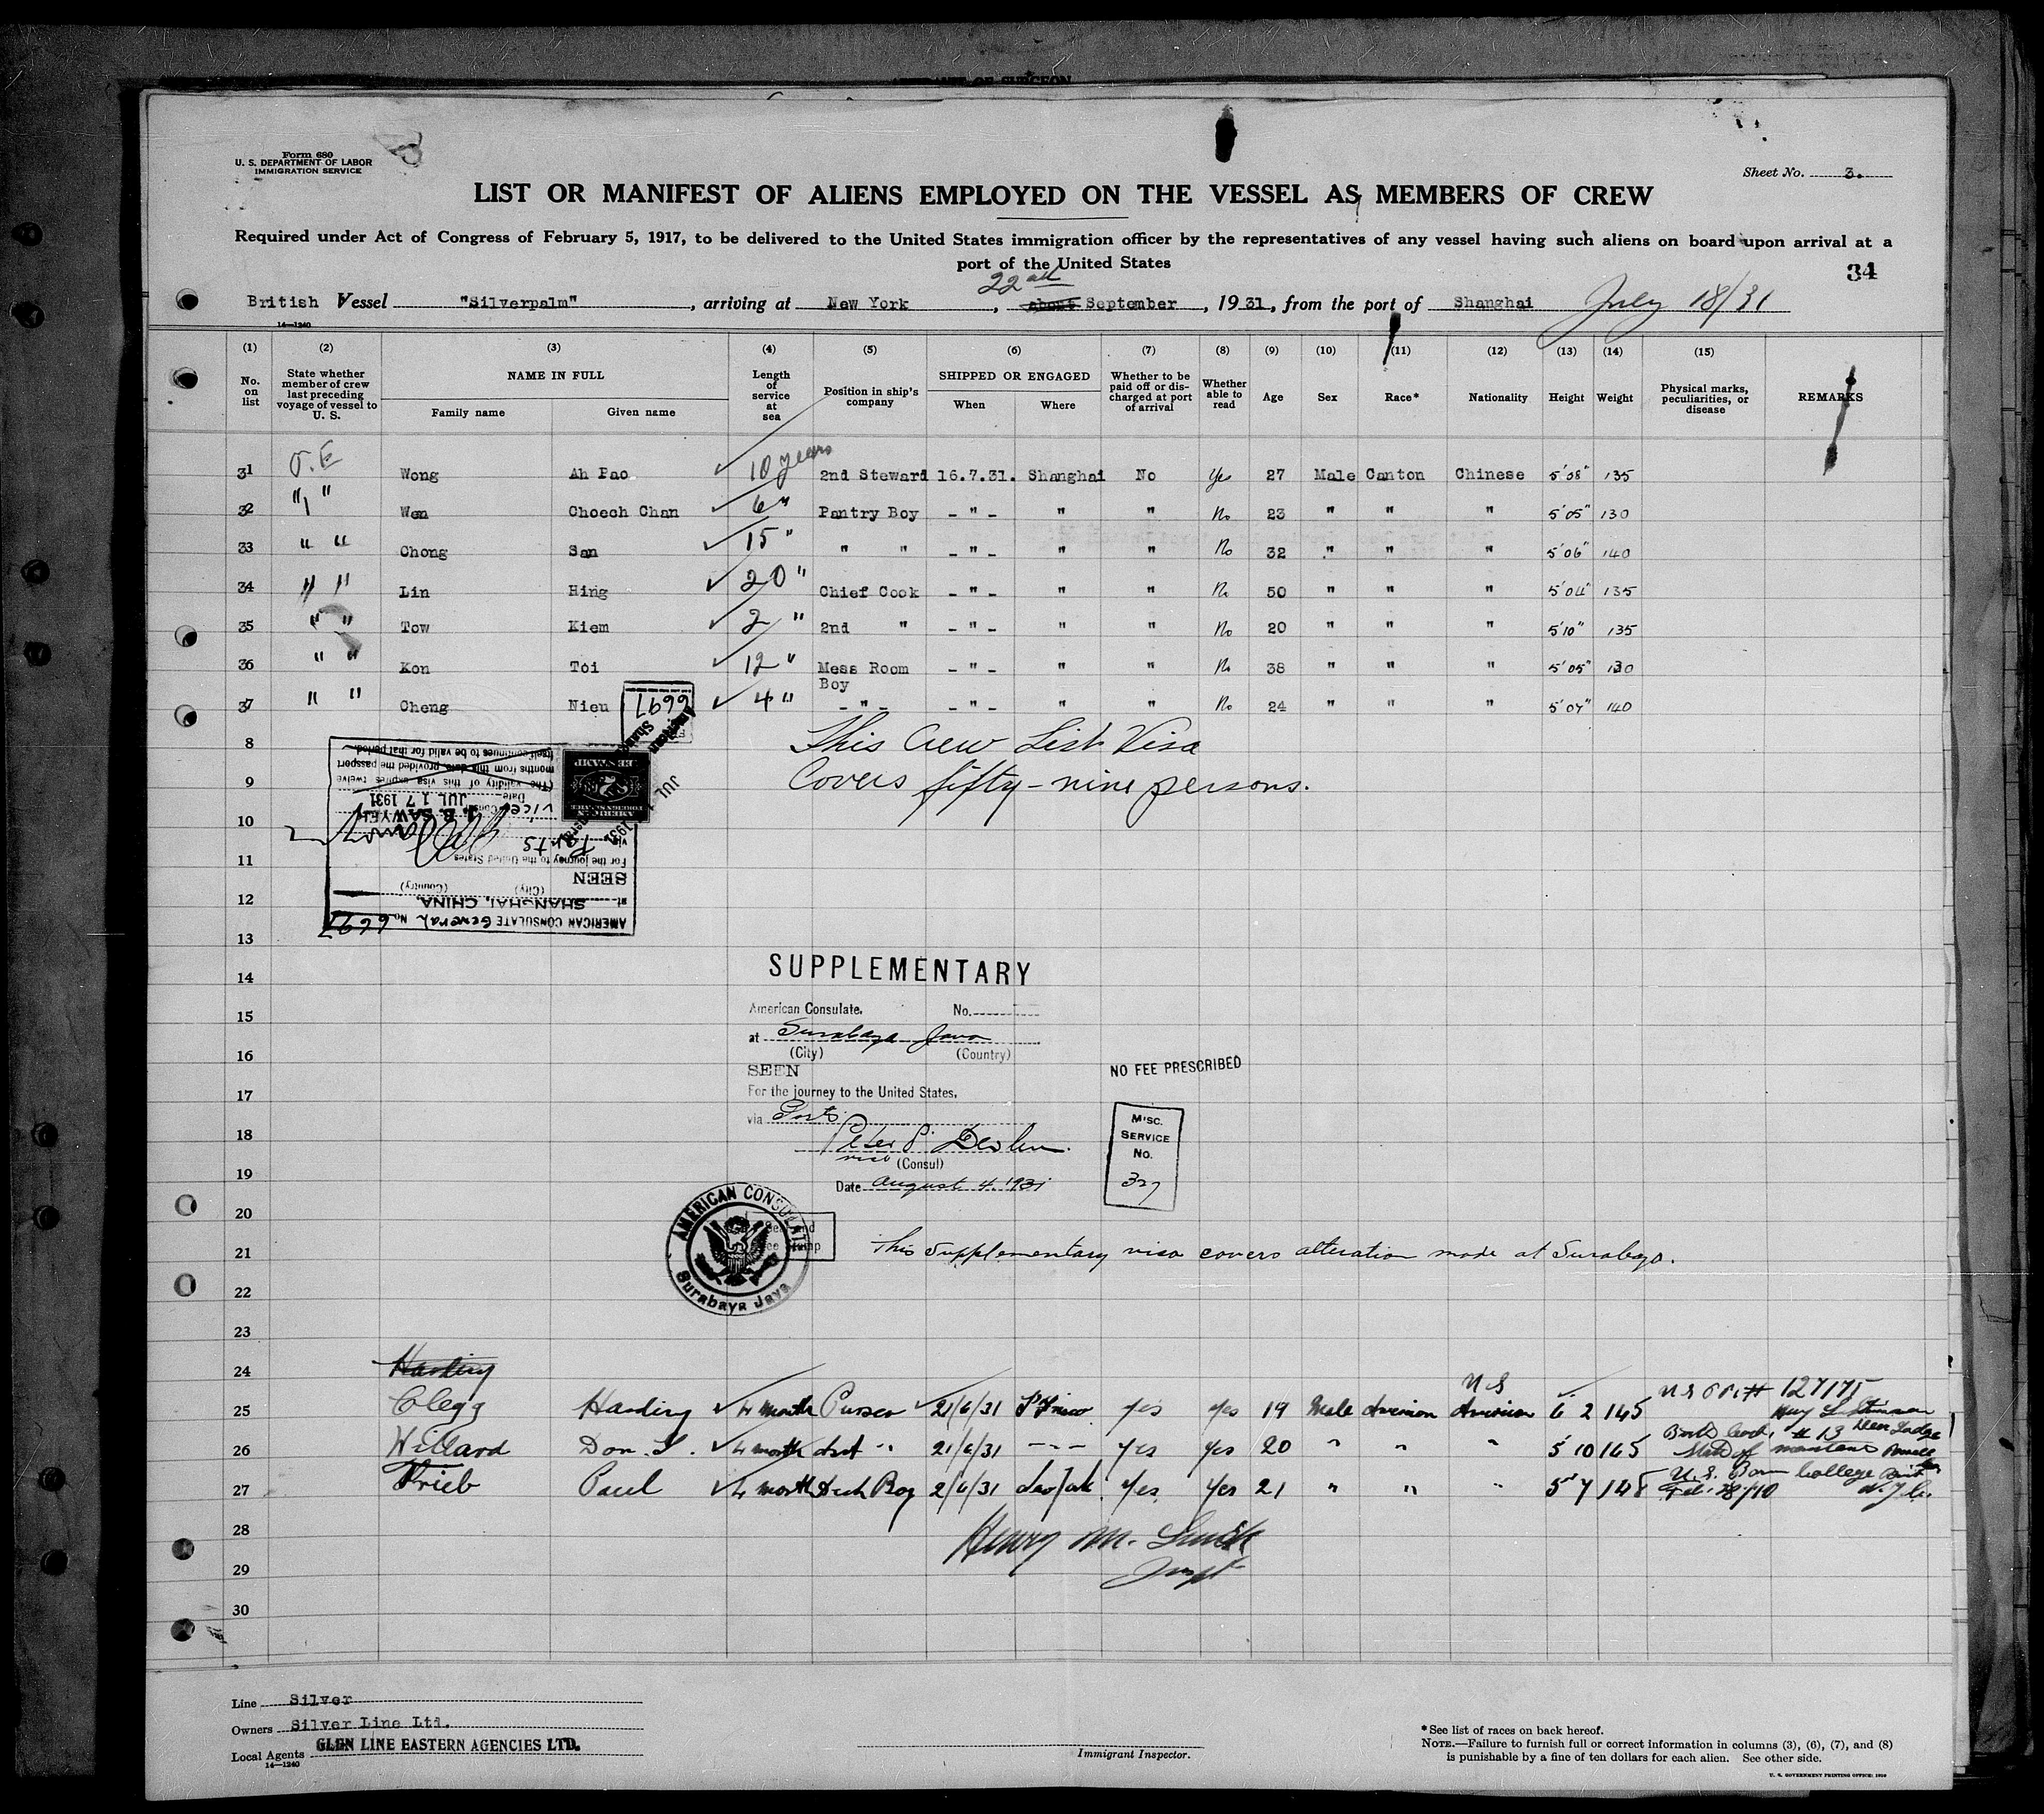 Form 680
U. S. DEPARTMENT OF LABOR
IMMIGRATION SERVICE
Sheet No. 3.
LIST OR MANIFEST OF ALIENS EMPLOYED ON THE VESSEL AS MEMBERS OF CREW
Required under Act of Congress of February 5, 1917, to be delivered to the United States immigration officer by the representatives of any vessel having such aliens on board upon arrival at a
port of the United States
34
22nd
British Vessel "Silverpalm", arriving at New York, about September, 1931, from the port of Shanghai July 18/31
14—1240
(1) (2) (3) (4) (5) (6) (7) (8) (9) (10) (11) (12) (13) (14) (15)
No. on list
State whether member of crew last preceding voyage of vessel to U. S.
NAME IN FULL
Family name Given name
Length of service at sea
Position in ship's company
SHIPPED OR ENGAGED
When Where
Whether to be paid off or discharged at port of arrival
Whether able to read
Age Sex Race* Nationality Height Weight
Physical marks, peculiarities, or disease
REMARKS
31 Wong Ah Pao 10 years 2nd Steward 16.7.31. Shanghai No Yes 27 Male Canton Chinese 5'08" 135
32 " " Wen Choech Chan 6 " Pantry Boy - " - " " No 23 " " " 5'05" 130
33 " " Chong San 15 " " " - " - " " No 32 " " " 5'06" 140
34 " " Lin Hing 20 " Chief Cook - " - " " No 50 " " " 5'04" 135
35 " " Tow Kiem 2 " 2nd " - " - " " No 20 " " " 5'10" 135
36 " " Kon Toi 12 " Mess Room Boy - " - " " No 38 " " " 5'05" 130
37 " " Cheng Nieu 4 " - " - - " - " " No 24 " " " 5'07" 140
8 This Crew List Visa
9 Covers fifty-nine persons.
10
11
12
13
AMERICAN CONSULATE General No. 6697
at SHANGHAI, CHINA.
(City) (Country)
SEEN
For the journey to the United States
via Ports
J. B. SAWYER
vice Consul
Date JUL 17 1931
(The validity of this visa expires twelve
months from this date, provided the passport
itself continues to be valid for that period.
6697
AMERICAN
FOREIGN SERVICE
2
FEE STAMP
SUPPLEMENTARY
14
15 American Consulate, No.
at Surabaya Java
16 (City) (Country)
SEEN
NO FEE PRESCRIBED
17 For the journey to the United States,
via Ports
MISC. SERVICE No. 327
18 Peter P.
vice (Consul)
19 Date August 4. 1931
20
AMERICAN CONSULATE
Surabaya Java
21 This supplementary visa covers alteration made at Surabaya.
22
23
24 Harding
U S
U S
25 Clegg Harding 4 month Purser 21/6/31 yes yes 19 Male American American 6 2 145
127175
26 Willard Don. 4 month Asst " 21/6/31 - - - yes yes 20 " " " 5 10 165 # 13 Deer Lodge
State of Montana Powell
27 Frieb Paul 4 month Deck Boy 2/6/31 yes yes 21 " " " 5 7 148 U.S. Born College Point
N.Y.
28 Henry M. Smith
29 Inspt
30
Line Silver
Owners Silver Line Ltd.
Local Agents GLEN LINE EASTERN AGENCIES LTD.
14—1240
Immigrant Inspector.
*See list of races on back hereof.
NOTE.—Failure to furnish full or correct information in columns (3), (6), (7), and (8)
is punishable by a fine of ten dollars for each alien. See other side.
U. S. GOVERNMENT PRINTING OFFICE: